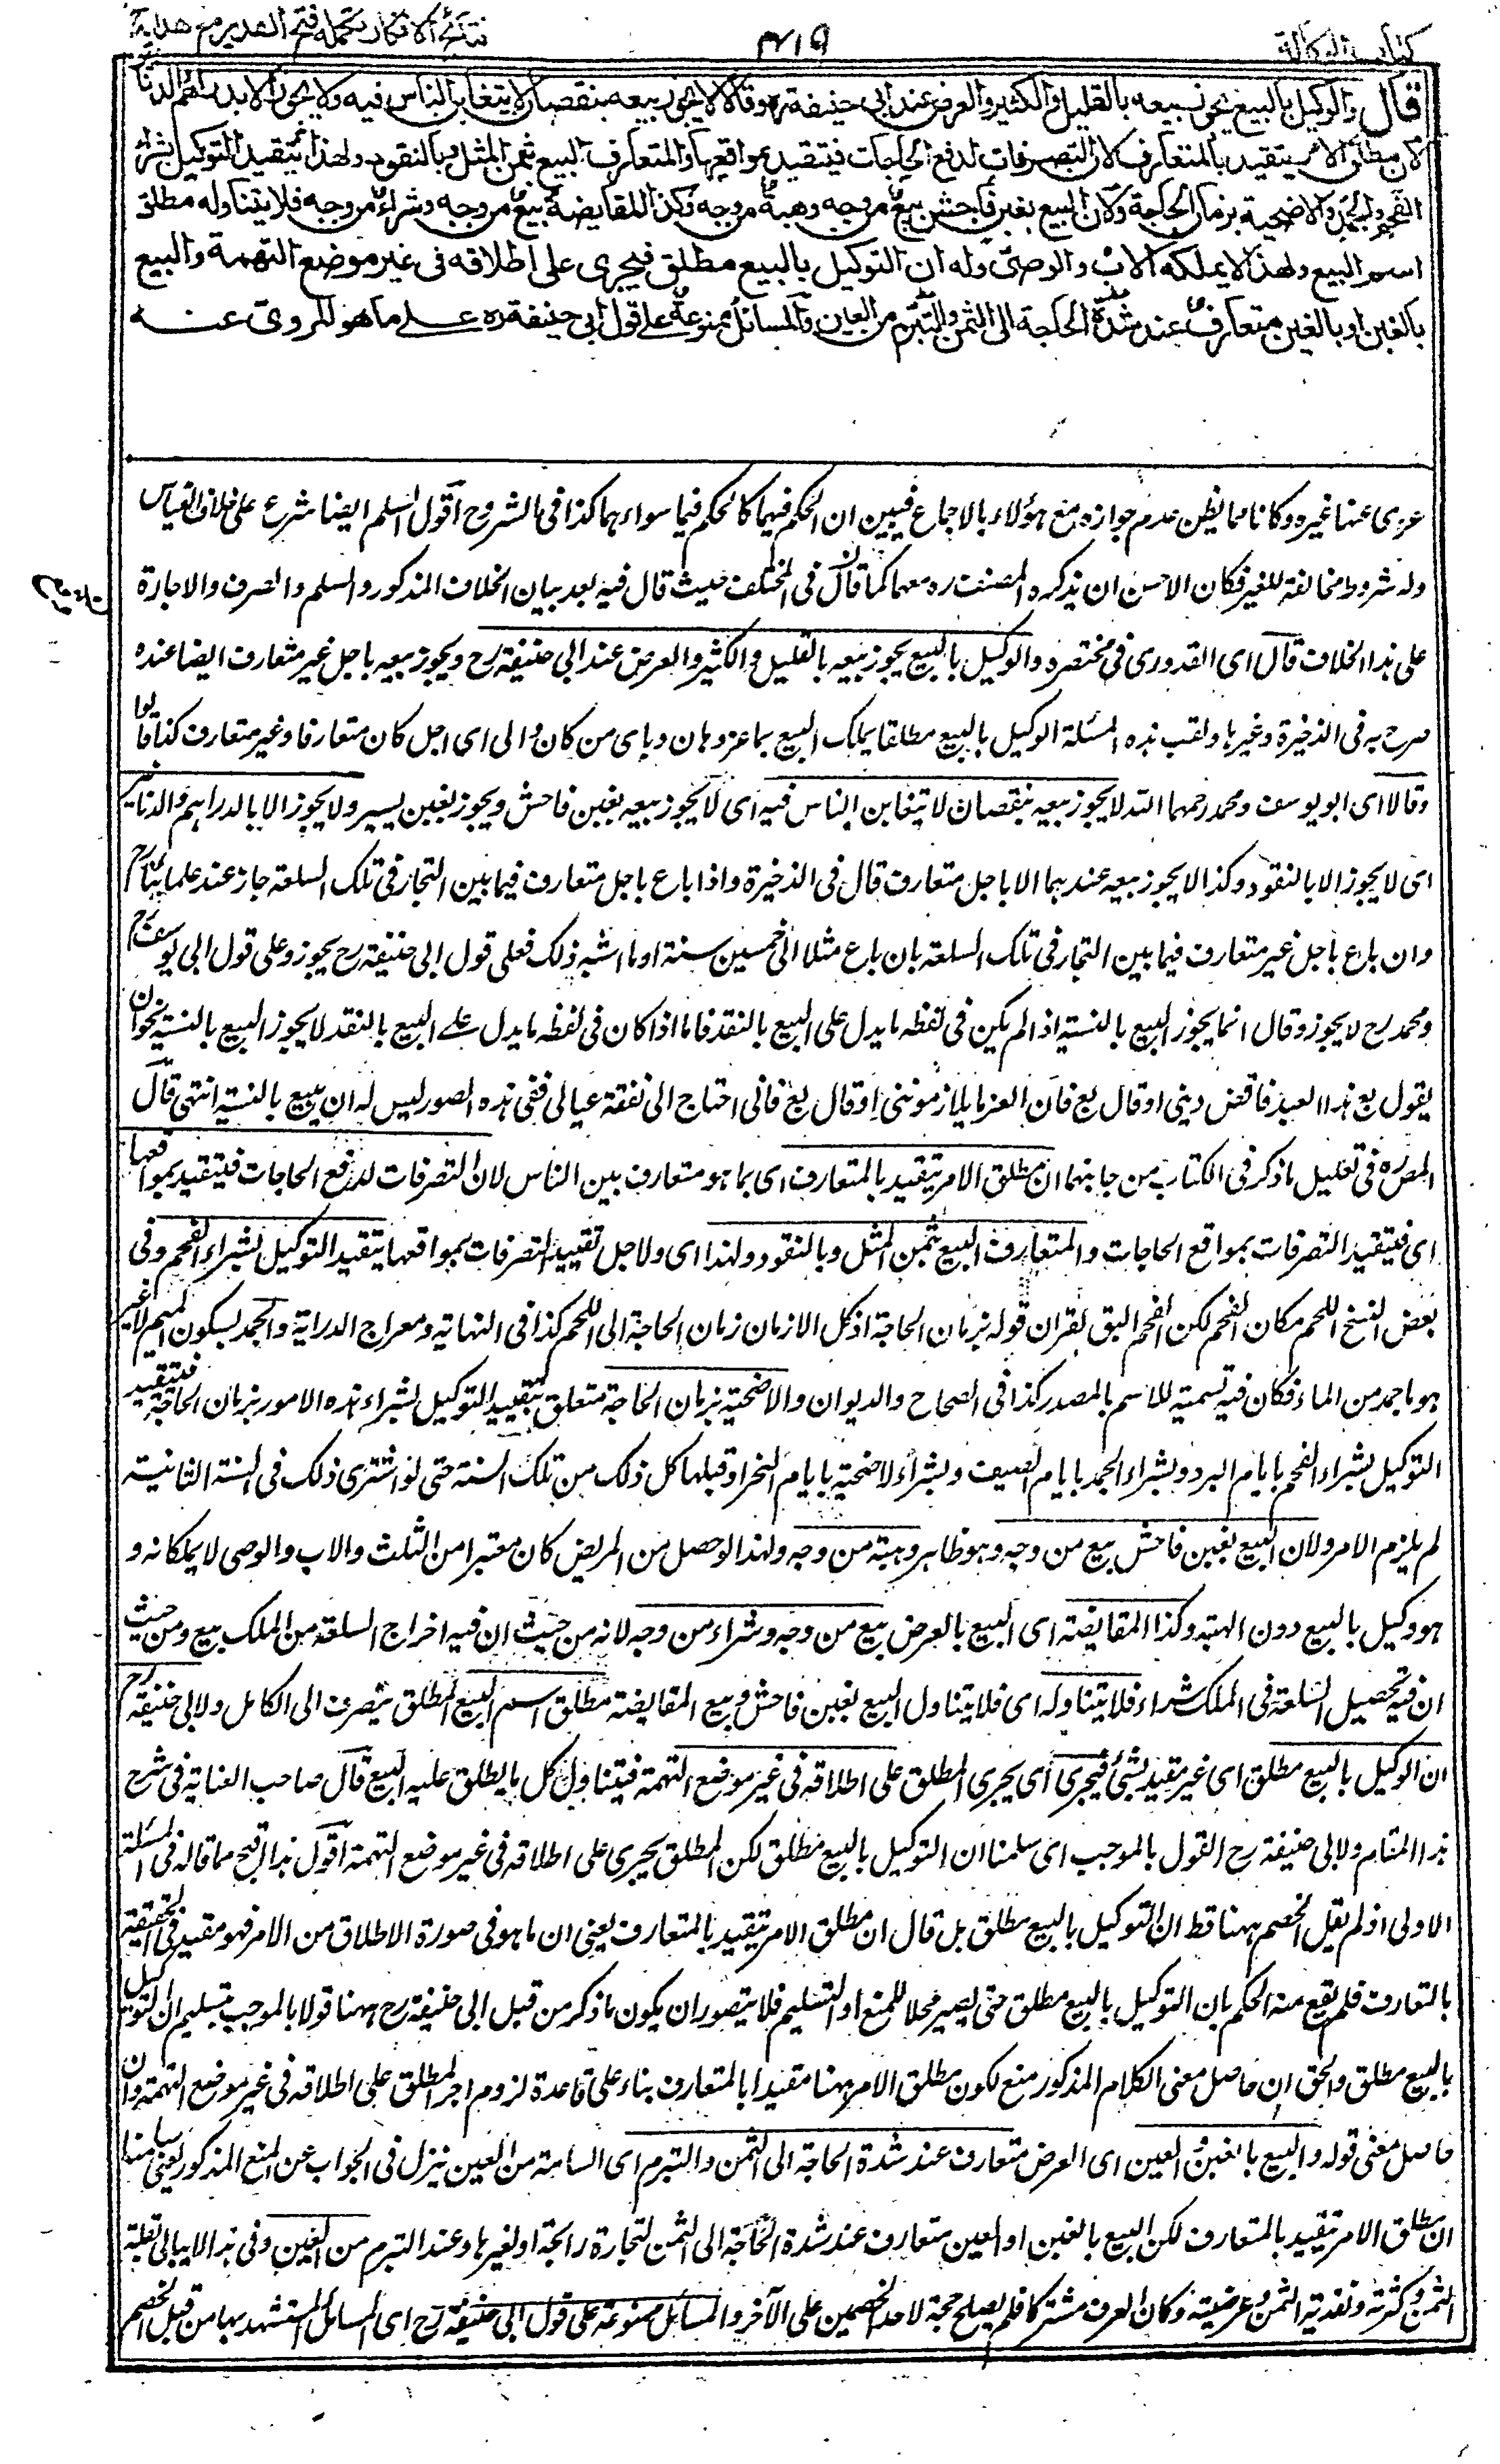 كتاب الوكالة
٤١٩
نتائج الافكار تكمله فتح القدير مع هدايه
قال والوكيل بالبيع يجوز بيعه بالقليل والكثير والعرض عند ابي حنيفة ره وقالا لا يجوز بيعه بنقصان لا يتغابن الناس فيه ولا يجوز الا بالدراهم والدنانير
لان مطلق الامر يتقيد بالمتعارف لان التصرفات لدفع الحاجات فيتقيد بمواقعها والمتعارف البيع بثمن المثل وبالنقود ولهذا يتقيد التوكيل بشراء
الفحم والجمد والاضحية بزمان الحاجة ولان البيع بغبن فاحش بيع من وجه وهبة من وجه وكذا المقايضة بيع من وجه وشراء من وجه فلا يتناوله مطلق
اسم البيع ولهذا لا يملكه الاب والوصي وله ان التوكيل بالبيع مطلق فيجري على اطلاقه في غير موضع التهمة والبيع
بالغبن او بالعين متعارف عند شدة الحاجة الى الثمن والتبرم من العين والمسائل ممنوعة على قول ابي حنيفة ره على ما هو المروي عنه
عرى عنها غيره وكانا مما يظن عدم جوازه مع هؤلاء بالاجماع فبين ان الحكم فيهما كالحكم فيما سواهما كذا في الشروح اقول السلم ايضا شرع على خلاف القياس
وله شروط مخالفة للغير فكان الاحسن ان يذكره المصنف ره معهما كما قال في المختلف حيث قال فيه بعد بيان الخلاف المذكور والسلم والصرف والاجارة
على هذا الخلاف قال اى القدوري في مختصره والوكيل بالبيع يجوز بيعه بالقليل والكثير والعرض عند ابي حنيفة رح ويجوز بيعه باجل غير متعارف ايضا عنده
صرح به في الذخيرة وغيرها ولقب هذه المسئلة الوكيل بالبيع مطلقا يملك البيع بما عز وهان وباى من كان والى اى اجل كان متعارفا وغير متعارف كذا قالوا
وقالا اى ابو يوسف ومحمد رحمهما الله لا يجوز بيعه بنقصان لا يتغابن الناس فيه اى لا يجوز بيعه بغبن فاحش ويجوز بغبن يسير ولا يجوز الا بالدراهم والدنانير
اى لا يجوز الا بالنقود وكذا لا يجوز بيعه عندهما الا باجل متعارف قال في الذخيرة واذا باع باجل متعارف فيما بين التجار في تلك السلعة جاز عند علمائنا رح
وان باع باجل غير متعارف فيما بين التجار في تلك السلعة بان باع مثلا الى خمسين سنة او ما اشبه ذلك فعلى قول ابي حنيفة رح يجوز وعلى قول ابي يوسف رح
ومحمد رح لا يجوز وقال انما يجوز البيع بالنسية اذا لم يكن في لفظه ما يدل على البيع بالنقد فاما اذا كان في لفظه ما يدل على البيع بالنقد لا يجوز البيع بالنسية نحو ان
يقول بع هذا العبد فاقض ديني او قال بع فان الغرماء يلازمونني او قال بع فاني احتاج الى نفقة عيالي ففي هذه الصور ليس له ان يبيع بالنسية انتهى قال
المص ره في تعليل ما ذكر في الكتاب من جانبهما ان مطلق الامر يتقيد بالمتعارف اى بما هو متعارف بين الناس لان التصرفات لدفع الحاجات فيتقيد بمواقعها
اى فيتقيد التصرفات بمواقع الحاجات والمتعارف البيع بثمن المثل وبالنقود ولهذا اى ولاجل تقييد التصرفات بمواقعها يتقيد التوكيل بشراء الفحم وفي
بعض النسخ اللحم مكان الفحم لكن الفحم اليق لقران قوله بزمان الحاجة اذ كل الازمان زمان الحاجة الى اللحم كذا في النهاية ومعراج الدراية والجمد بسكون الميم لا غير
هو ما جمد من الماء فكان فيه تسمية للاسم بالمصدر كذا في الصحاح والديوان والاضحية بزمان الحاجة متعلق بتقييد التوكيل بشراء هذه الامور بزمان الحاجة فيتقيد
التوكيل بشراء الفحم بايام البرد وبشراء الجمد بايام الصيف وبشراء الاضحية بايام النحر او قبلها كل ذلك من تلك السنة حتى لو اشترى ذلك في السنة الثانية
لم يلزم الامر ولان البيع بغبن فاحش بيع من وجه وهو ظاهر وهبة من وجه ولهذا لو حصل من المريض كان معتبرا من الثلث والاب والوصي لا يملكانه و
هو وكيل بالبيع دون الهبة وكذا المقايضة اى البيع بالعرض بيع من وجه وشراء من وجه لانه من حيث ان فيه اخراج السلعة من الملك بيع ومن حيث
ان فيه تحصيل السلعة في الملك شراء فلا يتناوله اى فلا يتناول البيع بغبن فاحش وبيع المقايضة مطلق اسم البيع المطلق يتصرف الى الكامل ولابي حنيفة رح
ان الوكيل بالبيع مطلق اى غير مقيد بشئ فيجري اى يجري المطلق على اطلاقه في غير موضع التهمة فيتناول كل ما يطلق عليه البيع قال صاحب العناية في شرح
هذا المقام ولابي حنيفة رح القول بالموجب اى سلمنا ان التوكيل بالبيع مطلق لكن المطلق يجري على اطلاقه في غير موضع التهمة اقول هذا اقبح مما قاله في المسئلة
الاولى اذ لم يقل الخصم ههنا قط ان التوكيل بالبيع مطلق بل قال ان مطلق الامر يتقيد بالمتعارف يعني ان ما هو في صورة الاطلاق من الامر فهو مقيد في الحقيقة
بالتعارف فلم يقع منه الحكم بان التوكيل بالبيع مطلق حتى يصير محلا للمنع او التسليم فلا يتصور ان يكون ما ذكر من قبل ابي حنيفة رح ههنا قولا بالموجب بتسليم ان التوكيل
بالبيع مطلق والحق ان حاصل معنى الكلام المذكور منع كون مطلق الامر ههنا مقيدا بالمتعارف بناء على قاعدة لزوم اجراء المطلق على اطلاقه في غير موضع التهمة وان
حاصل معنى قوله والبيع بالغبن والعين اى العرض متعارف عند شدة الحاجة الى الثمن والتبرم اى السامة من العين تنزل في الجواب عن المنع المذكور يعني سلمنا
ان مطلق الامر يتقيد بالمتعارف لكن البيع بالغبن او العين متعارف عند شدة الحاجة الى الثمن لتجارة رابحة او لغيرها وعند التبرم من العين وفي هذا لا يبالى بقلة
الثمن وكثرته ونقدية الثمن وعرضيته وكان العرف مشتركا فلم يصلح حجة لاحد الخصمين على الآخر والمسائل ممنوعة على قول ابي حنيفة رح اى المسائل المستشهد بها من قبل الخصم